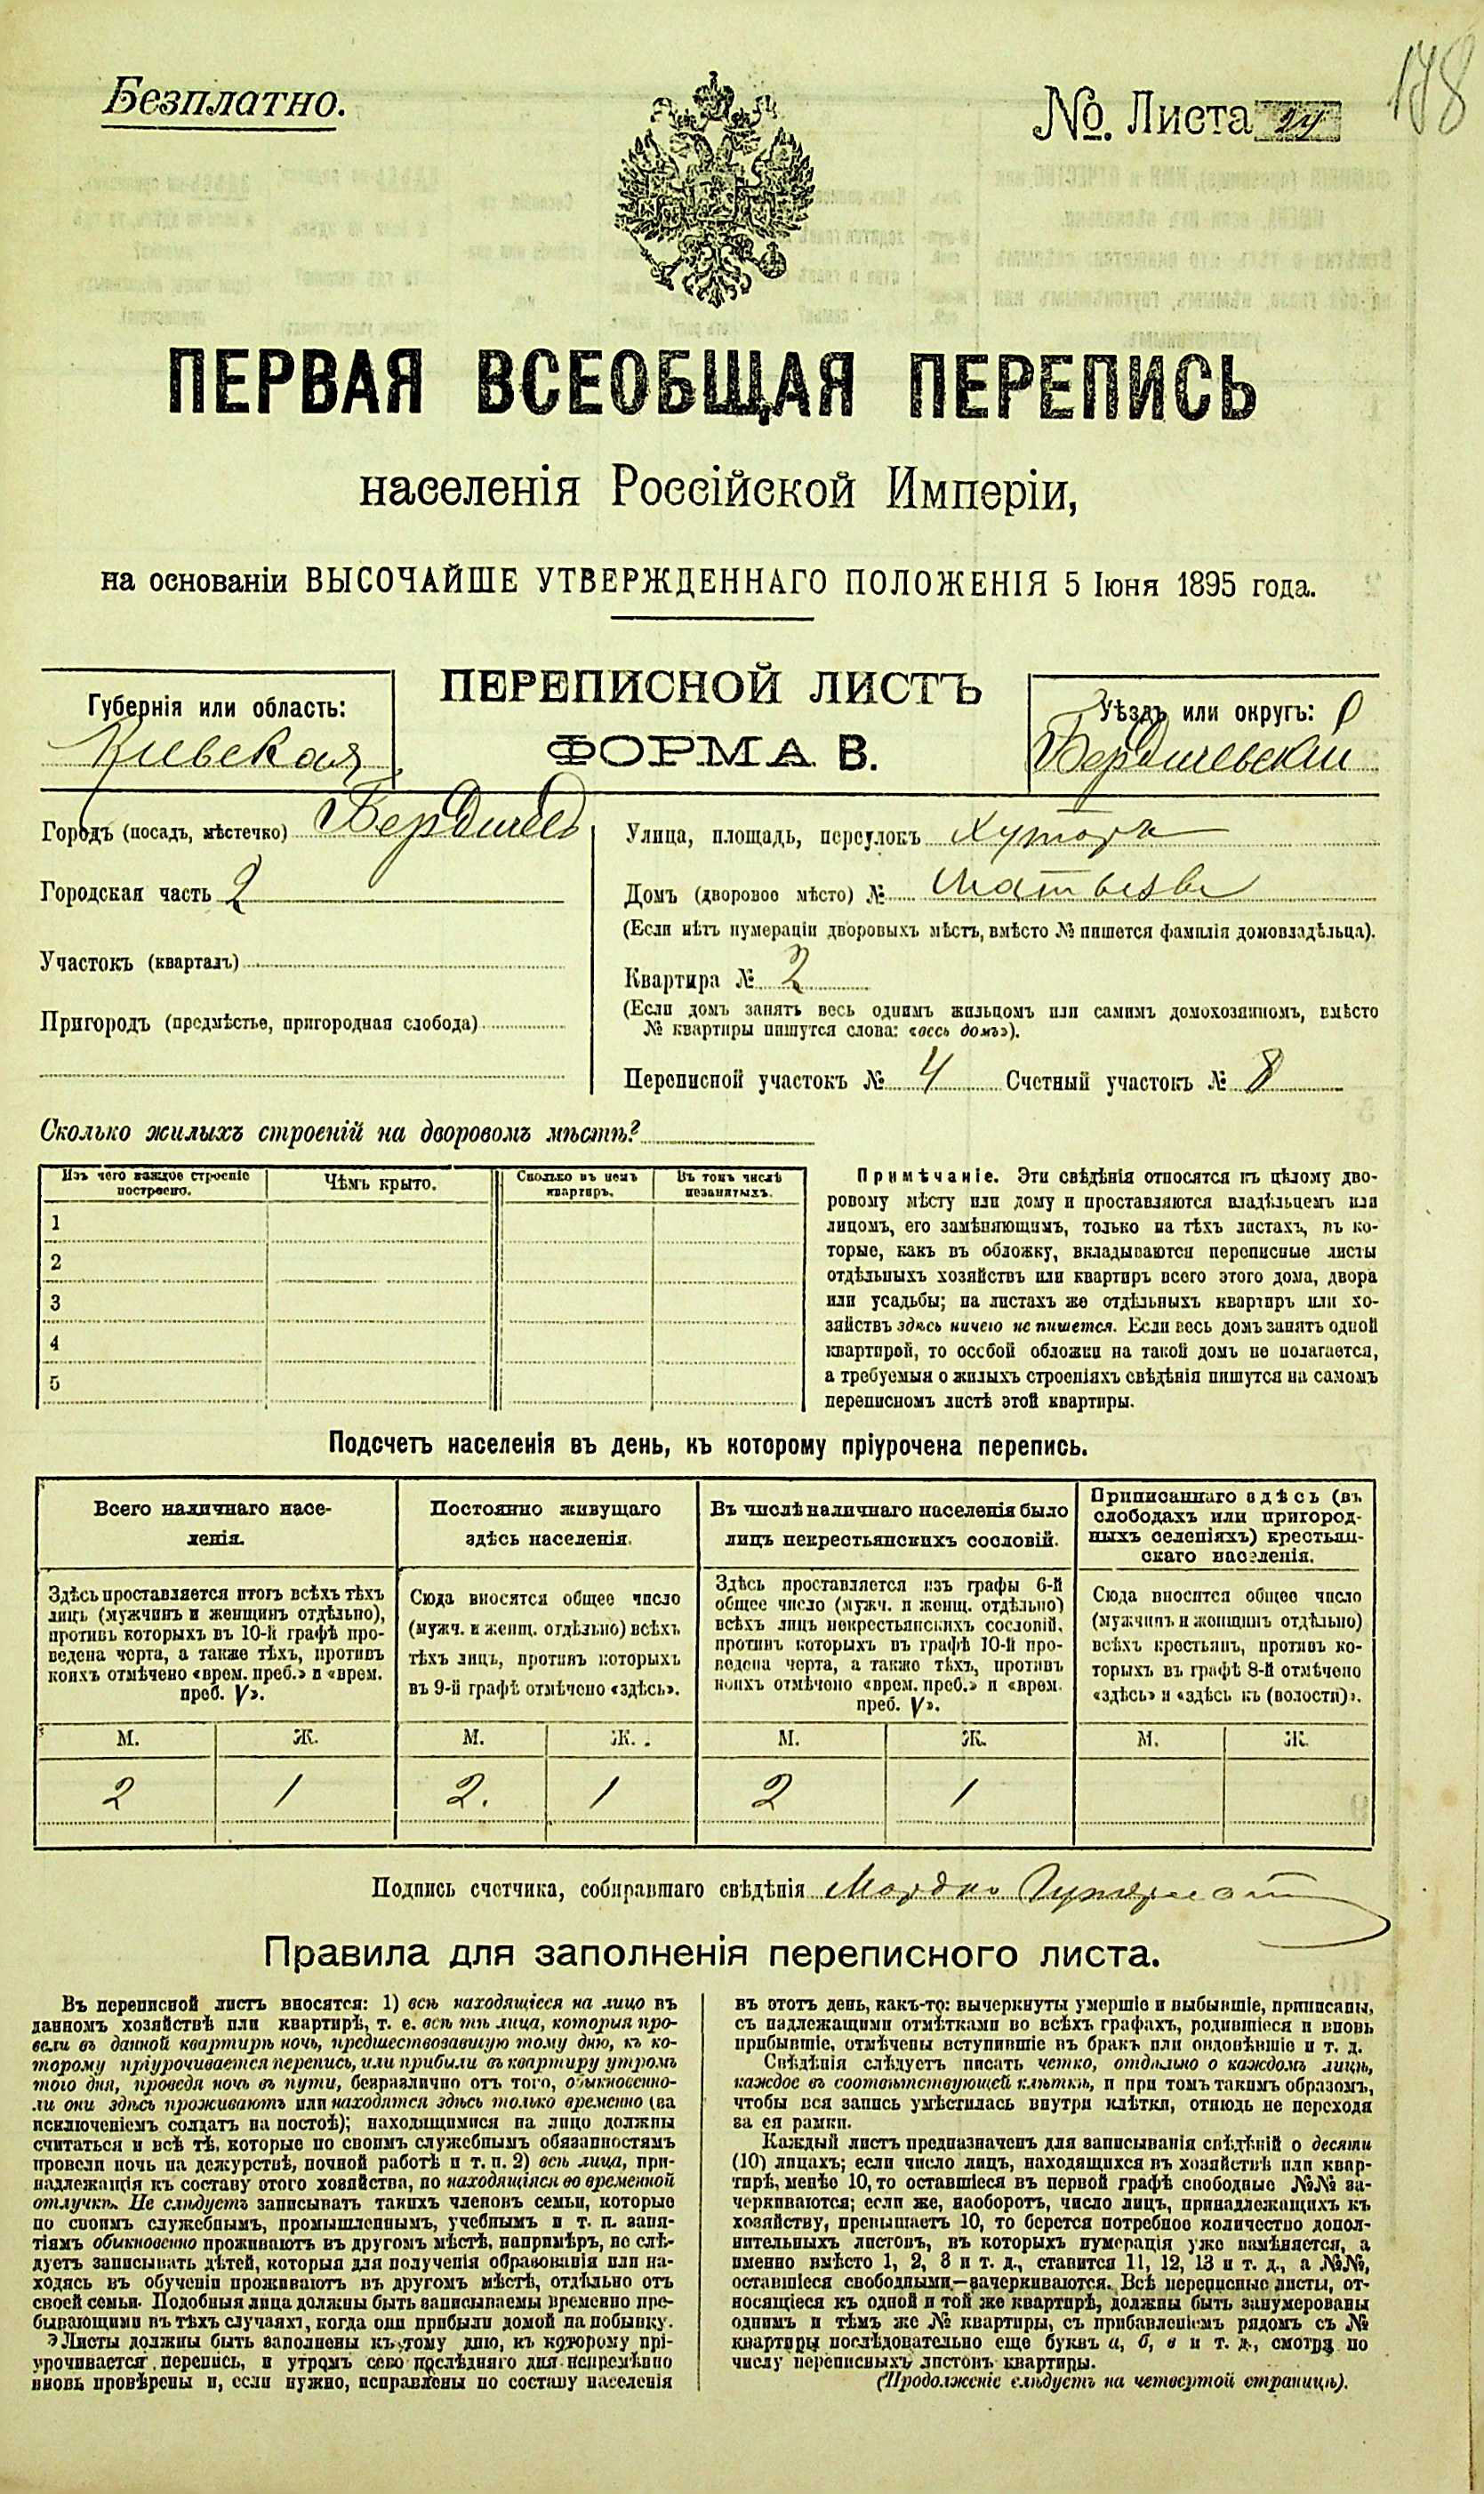 Безплатно.
№. Листа 24
178
ПЕРВАЯ ВСЕОБЩАЯ ПЕРЕПИСЬ
населенія Россійской Имперіи,
на основаніи ВЫСОЧАЙШЕ УТВЕРЖДЕННАГО ПОЛОЖЕНІЯ 5 Іюня 1895 года.
Губернія или область:
Кіевская
ПЕРЕПИСНОЙ ЛИСТЪ
ФОРМА В.
Уѣздъ или округъ:
Бердичевскій
Городъ (посадъ, мѣстечко) Бердичев
Городская часть 2
Участокъ (кварталъ)
Пригородъ (предмѣстье, пригородная слобода)
Улица, площадь, переулокъ Хутора
Домъ (дворовое мѣсто) №
(Если нѣтъ нумераціи дворовыхъ мѣстъ, вмѣсто № пишется фамилія домовладѣльца).
Квартира № 2
(Если домъ занятъ весь однимъ жильцомъ или самимъ домохозяиномъ, вмѣсто
№ квартиры пишутся слова: «весь домъ»).
Переписной участокъ № 4 Счетный участокъ № 8
Сколько жилыхъ строеній на дворовомъ мѣстѣ?
Изъ чего каждое строеніе
построено.
Чѣмъ крыто.
Сколько въ немъ
квартиръ.
Въ томъ числѣ
незанятыхъ.
1
2
3
4
5
Примѣчаніе. Эти свѣдѣнія относятся къ цѣлому дво-
ровому мѣсту или дому и проставляются владѣльцемъ или
лицомъ, его замѣняющимъ, только на тѣхъ листахъ, въ ко-
торые, какъ въ обложку, вкладываются переписные листы
отдѣльныхъ хозяйствъ или квартиръ всего этого дома, двора
или усадьбы; на листахъ же отдѣльныхъ квартиръ или хо-
зяйствъ здѣсь ничего не пишется. Если весь домъ занятъ одной
квартирой, то особой обложки на такой домъ не полагается,
а требуемыя о жилыхъ строеніяхъ свѣдѣнія пишутся на самомъ
переписномъ листѣ этой квартиры.
Подсчетъ населенія въ день, къ которому пріурочена перепись.
Всего наличнаго насе-
ленія.
Здѣсь проставляется итогъ всѣхъ тѣхъ
лицъ (мужчинъ и женщинъ отдѣльно),
противъ которыхъ въ 10-й графѣ про-
ведена черта, а также тѣхъ, противъ
коихъ отмѣчено «врем. преб.» и «врем.
преб. V».
Постоянно живущаго
здѣсь населенія.
Сюда вносятся общее число
(мужч. и женщ. отдѣльно) всѣхъ
тѣхъ лицъ, противъ которыхъ
въ 9-й графѣ отмѣчено «здѣсь».
Въ числѣ наличнаго населенія было
лицъ некрестьянскихъ сословій.
Здѣсь проставляется изъ графы 6-й
общее число (мужч. и женщ. отдѣльно)
всѣхъ лицъ некрестьянскихъ сословій,
противъ которыхъ въ графѣ 10-й про-
ведена черта, а также тѣхъ, противъ
коихъ отмѣчено «врем. преб.» и «врем.
преб. V».
Приписаннаго здѣсь (въ
слободахъ или пригород-
ныхъ селеніяхъ) крестьян-
скаго населенія.
Сюда вносится общее число
(мужчинъ и женщинъ отдѣльно)
всѣхъ крестьянъ, противъ ко-
торыхъ въ графѣ 8-й отмѣчено
«здѣсь» и «здѣсь къ (волости)».
М. Ж. М. Ж. М. Ж. М. Ж.
2 1 2. 1 2 1
Подпись счетчика, собиравшаго свѣдѣнія
Правила для заполненія переписного листа.
Въ переписной листъ вносятся: 1) всѣ находящіеся на лицо въ
данномъ хозяйствѣ или квартирѣ, т. е. всѣ тѣ лица, которыя про-
вели въ данной квартирѣ ночь, предшествовавшую тому дню, къ ко-
торому пріурочивается перепись, или прибыли въ квартиру утромъ
того дня, проведя ночь въ пути, безразлично отъ того, обыкновенно-
ли они здѣсь проживаютъ или находятся здѣсь только временно (за
исключеніемъ солдатъ на постоѣ); находящимися на лицо должны
считаться и всѣ тѣ, которые по своимъ служебнымъ обязанностямъ
провели ночь на дежурствѣ, ночной работѣ и т. п. 2) всѣ лица, при-
надлежащія къ составу этого хозяйства, но находящіяся во временной
отлучкѣ. Не слѣдуетъ записывать такихъ членовъ семьи, которые
по своимъ служебнымъ, промышленнымъ, учебнымъ и т. п. заня-
тіямъ обыкновенно проживаютъ въ другомъ мѣстѣ, напримѣръ, не слѣ-
дуетъ записывать дѣтей, которыя для полученія образованія или на-
ходясь въ обученіи проживаютъ въ другомъ мѣстѣ, отдѣльно отъ
своей семьи. Подобныя лица должны быть записываемы временно пре-
бывающими въ тѣхъ случаяхъ, когда они прибыли домой на побывку.
Листы должны быть заполнены къ тому дню, къ которому прі-
урочивается перепись, и утромъ сего послѣдняго дня непремѣнно
вновь провѣрены и, если нужно, исправлены по составу населенія
въ этотъ день, какъ-то: вычеркнуты умершіе и выбывшіе, приписаны,
съ надлежащими отмѣтками во всѣхъ графахъ, родившіеся и вновь
прибывшіе, отмѣчены вступившіе въ бракъ или овдовѣвшіе и т. д.
Свѣдѣнія слѣдуетъ писать четко, отдѣльно о каждомъ лицѣ,
каждое въ соотвѣтствующей клѣткѣ, и при томъ такимъ образомъ,
чтобы вся запись умѣстилась внутри клѣтки, отнюдь не переходя
за ея рамки.
Каждый листъ предназначенъ для записыванія свѣдѣній о десяти
(10) лицахъ; если число лицъ, находящихся въ хозяйствѣ или квар-
тирѣ, менѣе 10, то оставшіеся въ первой графѣ свободные №№ за-
черкиваются; если же, наоборотъ, число лицъ, принадлежащихъ къ
хозяйству, превышаетъ 10, то берется потребное количество допол-
нительныхъ листовъ, въ которыхъ нумерація уже измѣняется, а
именно вмѣсто 1, 2, 3 и т. д., ставится 11, 12, 13 и т. д., а №№,
оставшіеся свободными,—зачеркиваются. Всѣ переписные листы, от-
носящіеся къ одной и той же квартирѣ, должны быть занумерованы
однимъ и тѣмъ же № квартиры, съ прибавленіемъ рядомъ съ №
квартиры послѣдовательно еще буквъ а, б, в и т. д., смотря по
числу переписныхъ листовъ квартиры.
(Продолженіе слѣдуетъ на четвертой страницѣ).